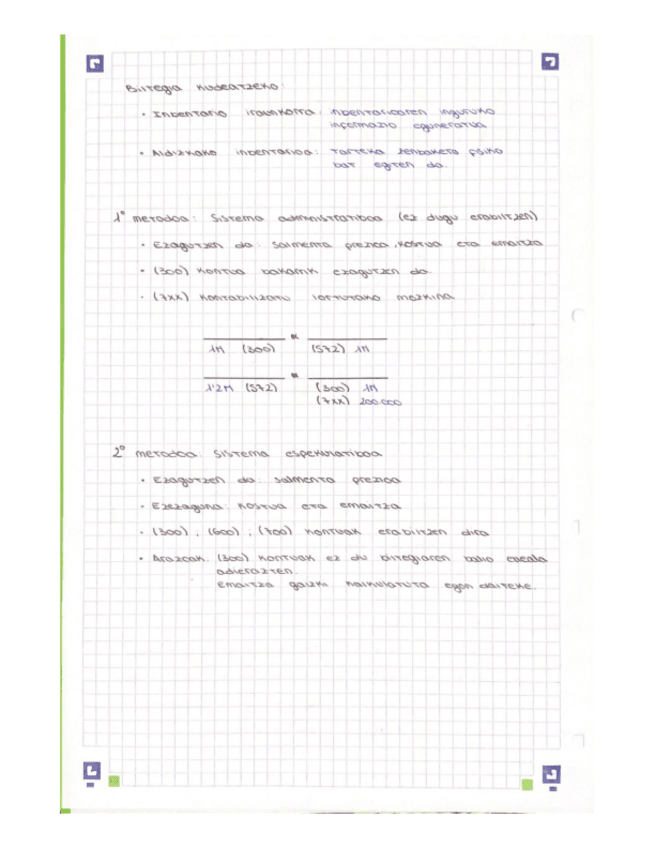 Biltegia kudeatzeko:
· Inbentario iraunkorra: inbentarioaren inguruko
informazio eguneratua
· Aldizkako inbentarioa: tarteka zenbaketa fisiko
bat egiten da.
1º metodoa: Sistema administratiboa (ez dugu erabiltzen)
· Ezagutzen da: salmenta prezioa, kostua eta emaitza
· (300) kontua bakarrik ezagutzen da
· (7xx) kontabilizatu lortutako mozkina
1M (300) a (572) 1M
1'2M (572) a (300) 1M
(7xx) 200.000
2º metodoa: Sistema espekulatiboa
· Ezagutzen da: salmenta prezioa
· Ezezaguna: kostua eta emaitza
· (300), (600), (700) kontuak erabiltzen dira
· Arazoak: (300) kontuak ez du biltegiaren balio erreala
adierazten.
Emaitza gaizki kalkulatuta egon daiteke.